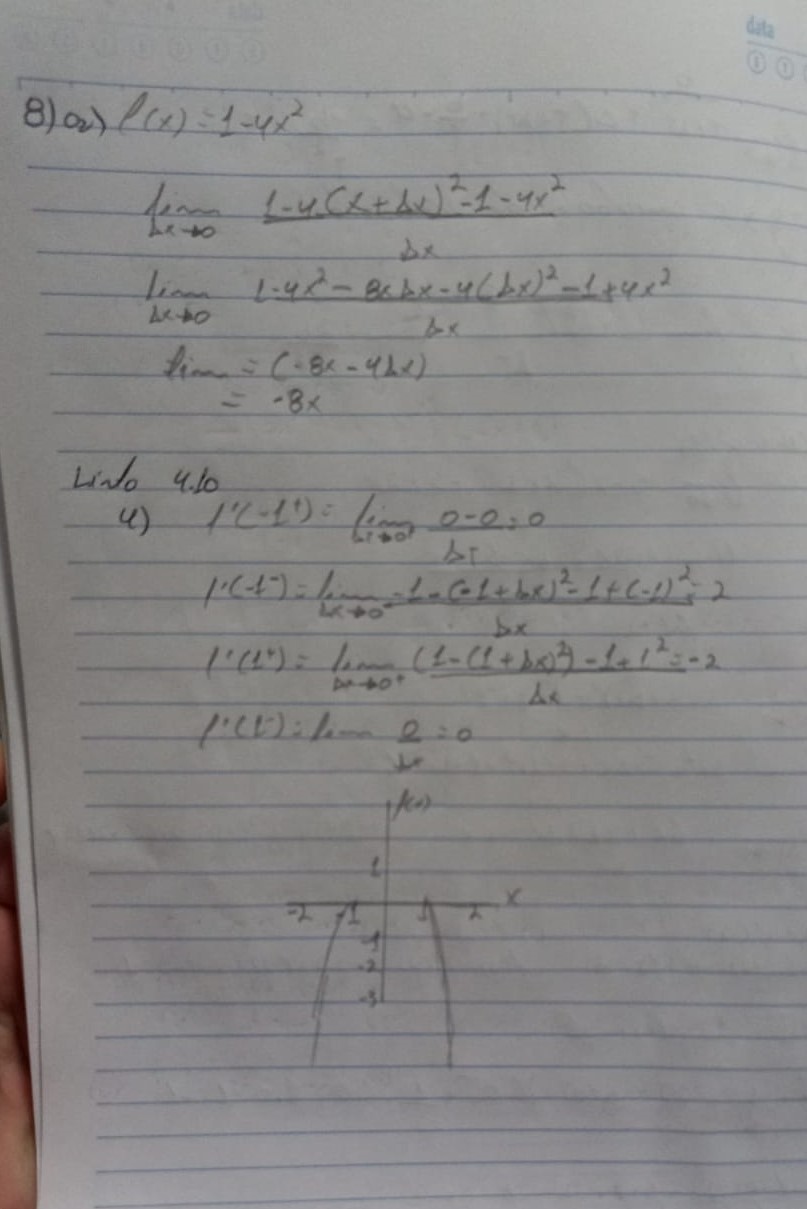 data
8) a) f(x) = 1-4x²
lim Δx→0 1-4(x+Δx)²-1-4x² / Δx
lim Δx→0 1-4x²-8xΔx-4(Δx)²-1+4x² / Δx
lim = (-8x-4Δx)
= -8x
4.10
4) f'(-1⁺) = lim Δx→0⁺ 0-0 / Δx = 0
f'(-1⁻) = lim Δx→0⁻ -1-(-1+Δx)²-1+(-1)² / Δx = 2
f'(1⁺) = lim Δx→0⁺ (1-(1+Δx)²)-1+1² / Δx = -2
f'(1⁻) = lim 0 / Δx = 0
f(x)
1
-2 -1 1 2 x
-1
-2
-3